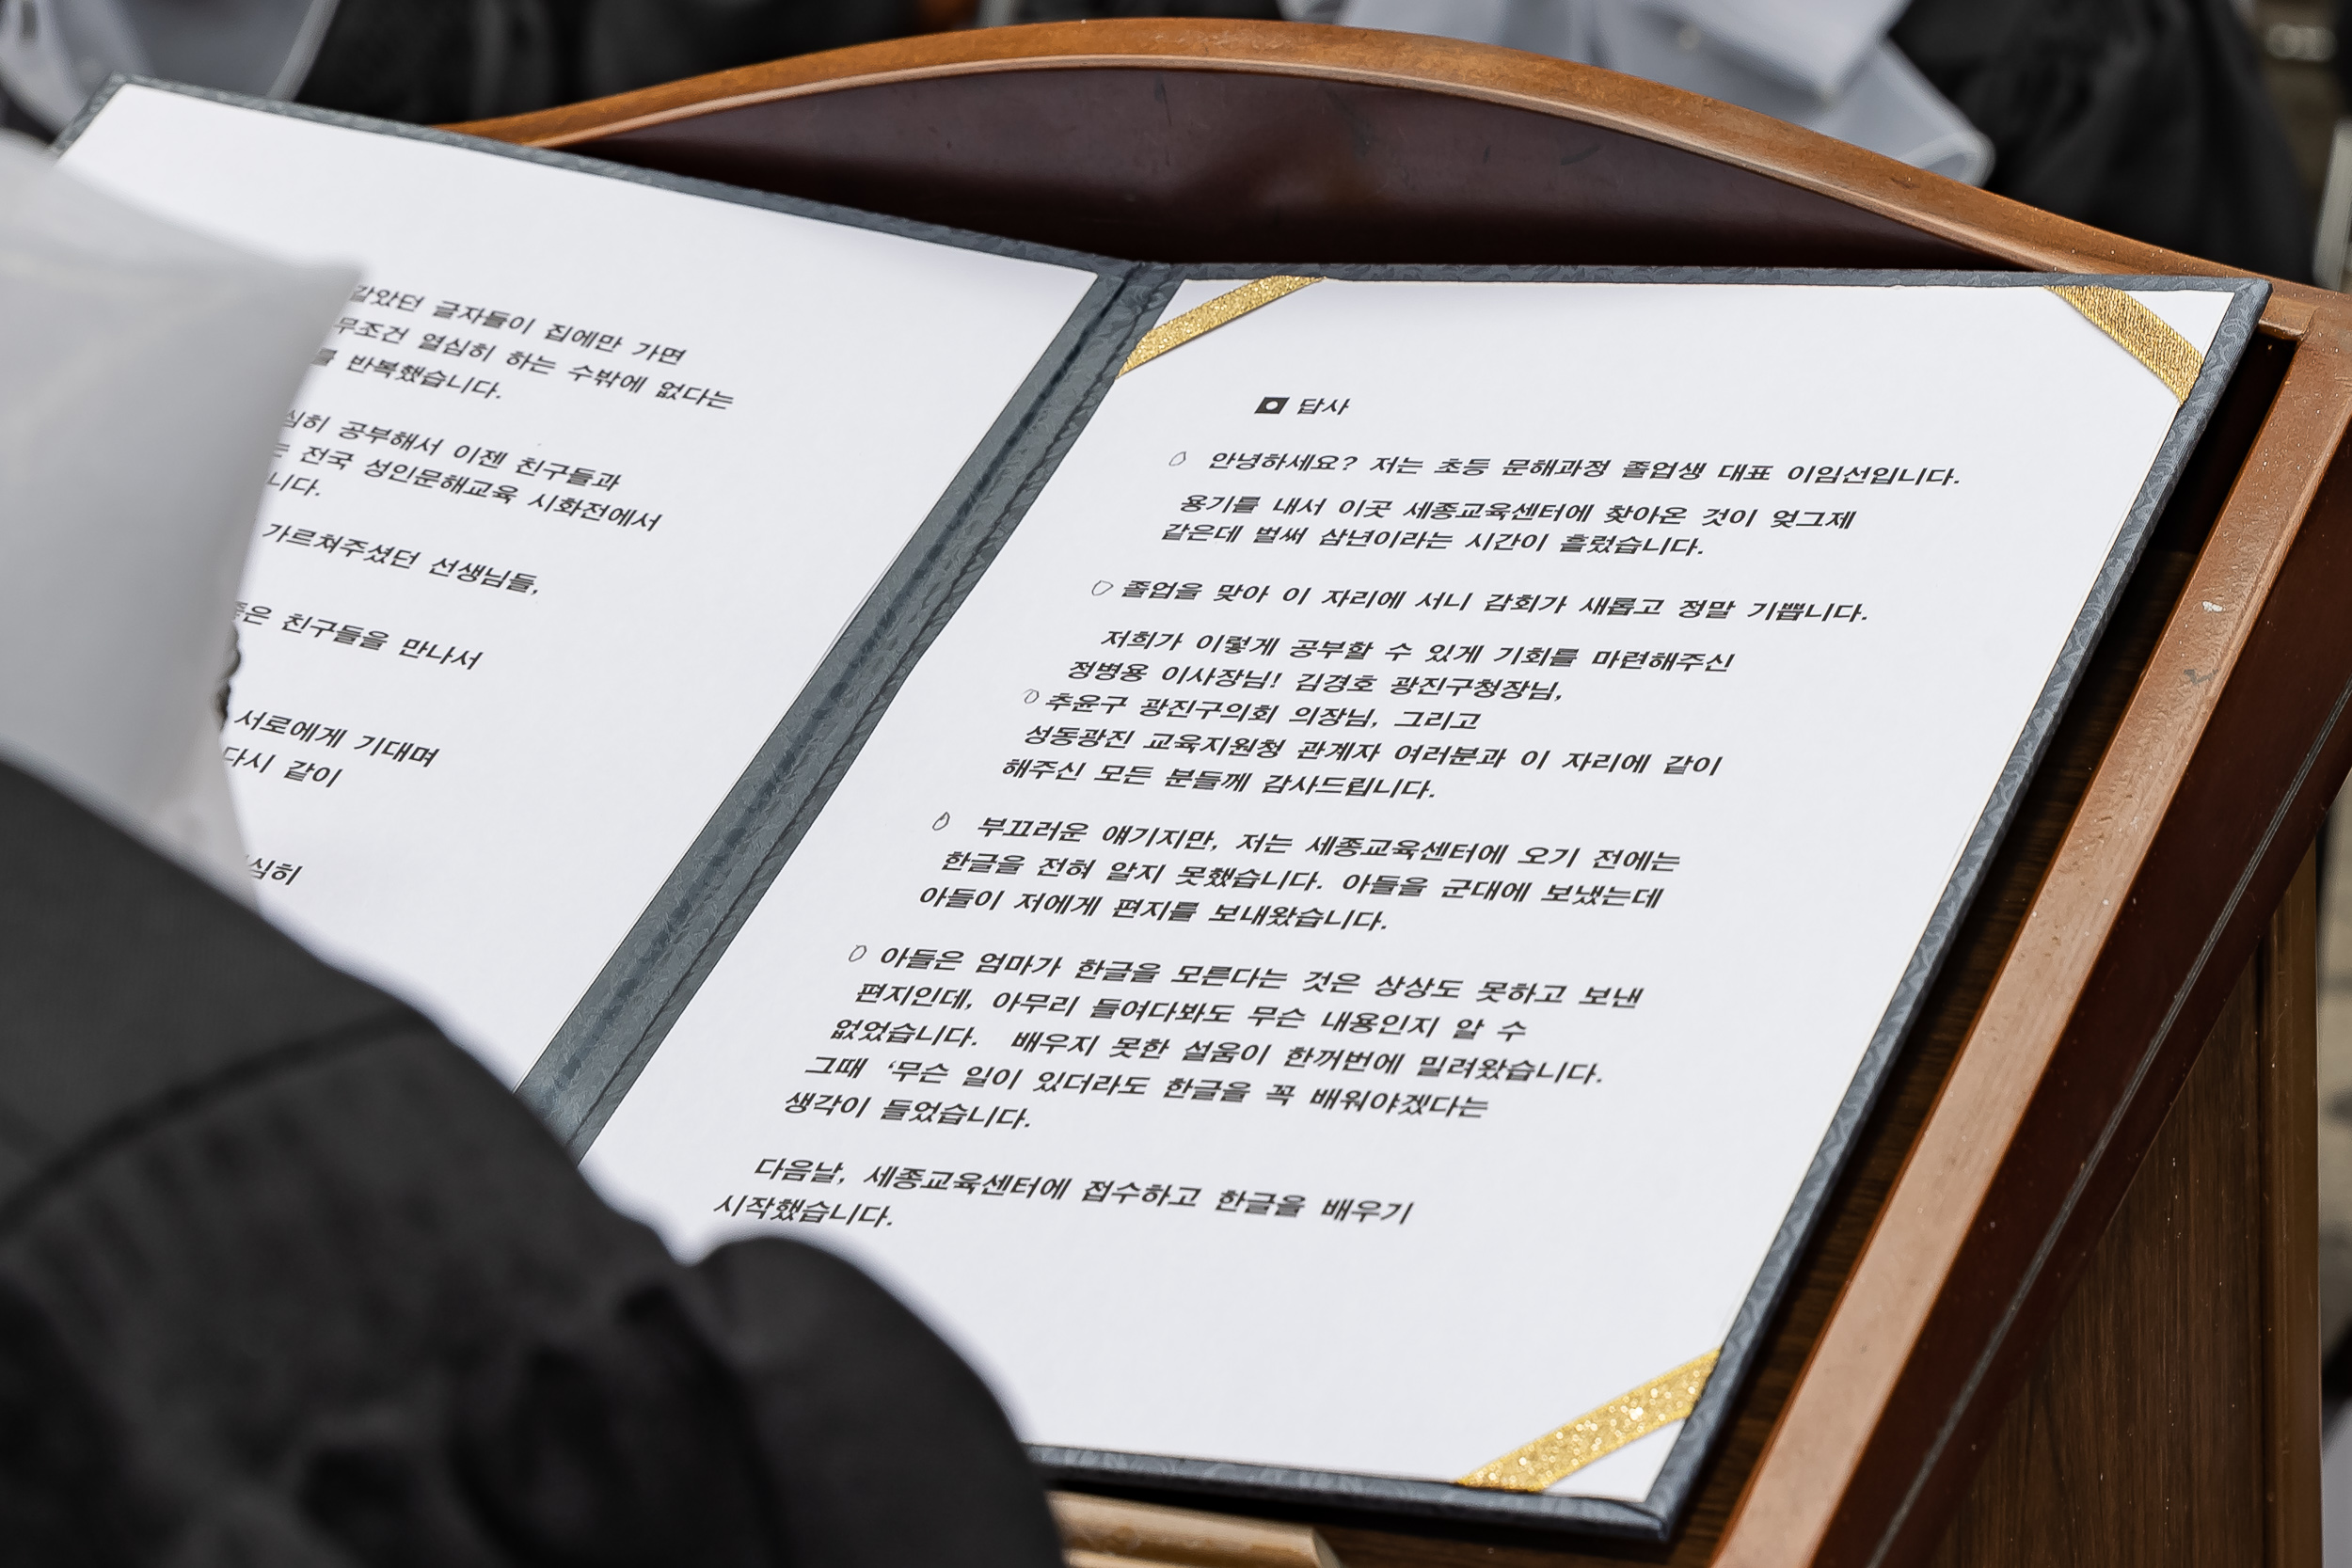 갈았던 글자들이 집에만 가면
무조건 열심히 하는 수밖에 없다는
를 반복했습니다.
심히 공부해서 이젠 친구들과
는 전국 성인문해교육 시화전에서
니다.
가르쳐주셨던 선생님들,
좋은 친구들을 만나서
서로에게 기대며
다시 같이
심히
답사
안녕하세요? 저는 초등 문해과정 졸업생 대표 이임선입니다.
용기를 내서 이곳 세종교육센터에 찾아온 것이 엊그제
같은데 벌써 삼년이라는 시간이 흘렀습니다.
졸업을 맞아 이 자리에 서니 감회가 새롭고 정말 기쁩니다.
저희가 이렇게 공부할 수 있게 기회를 마련해주신
정병용 이사장님! 김경호 광진구청장님,
추윤구 광진구의회 의장님, 그리고
성동광진 교육지원청 관계자 여러분과 이 자리에 같이
해주신 모든 분들께 감사드립니다.
부끄러운 얘기지만, 저는 세종교육센터에 오기 전에는
한글을 전혀 알지 못했습니다. 아들을 군대에 보냈는데
아들이 저에게 편지를 보내왔습니다.
아들은 엄마가 한글을 모른다는 것은 상상도 못하고 보낸
편지인데, 아무리 들여다봐도 무슨 내용인지 알 수
없었습니다. 배우지 못한 설움이 한꺼번에 밀려왔습니다.
그때 ‘무슨 일이 있더라도 한글을 꼭 배워야겠다는
생각이 들었습니다.
다음날, 세종교육센터에 접수하고 한글을 배우기
시작했습니다.